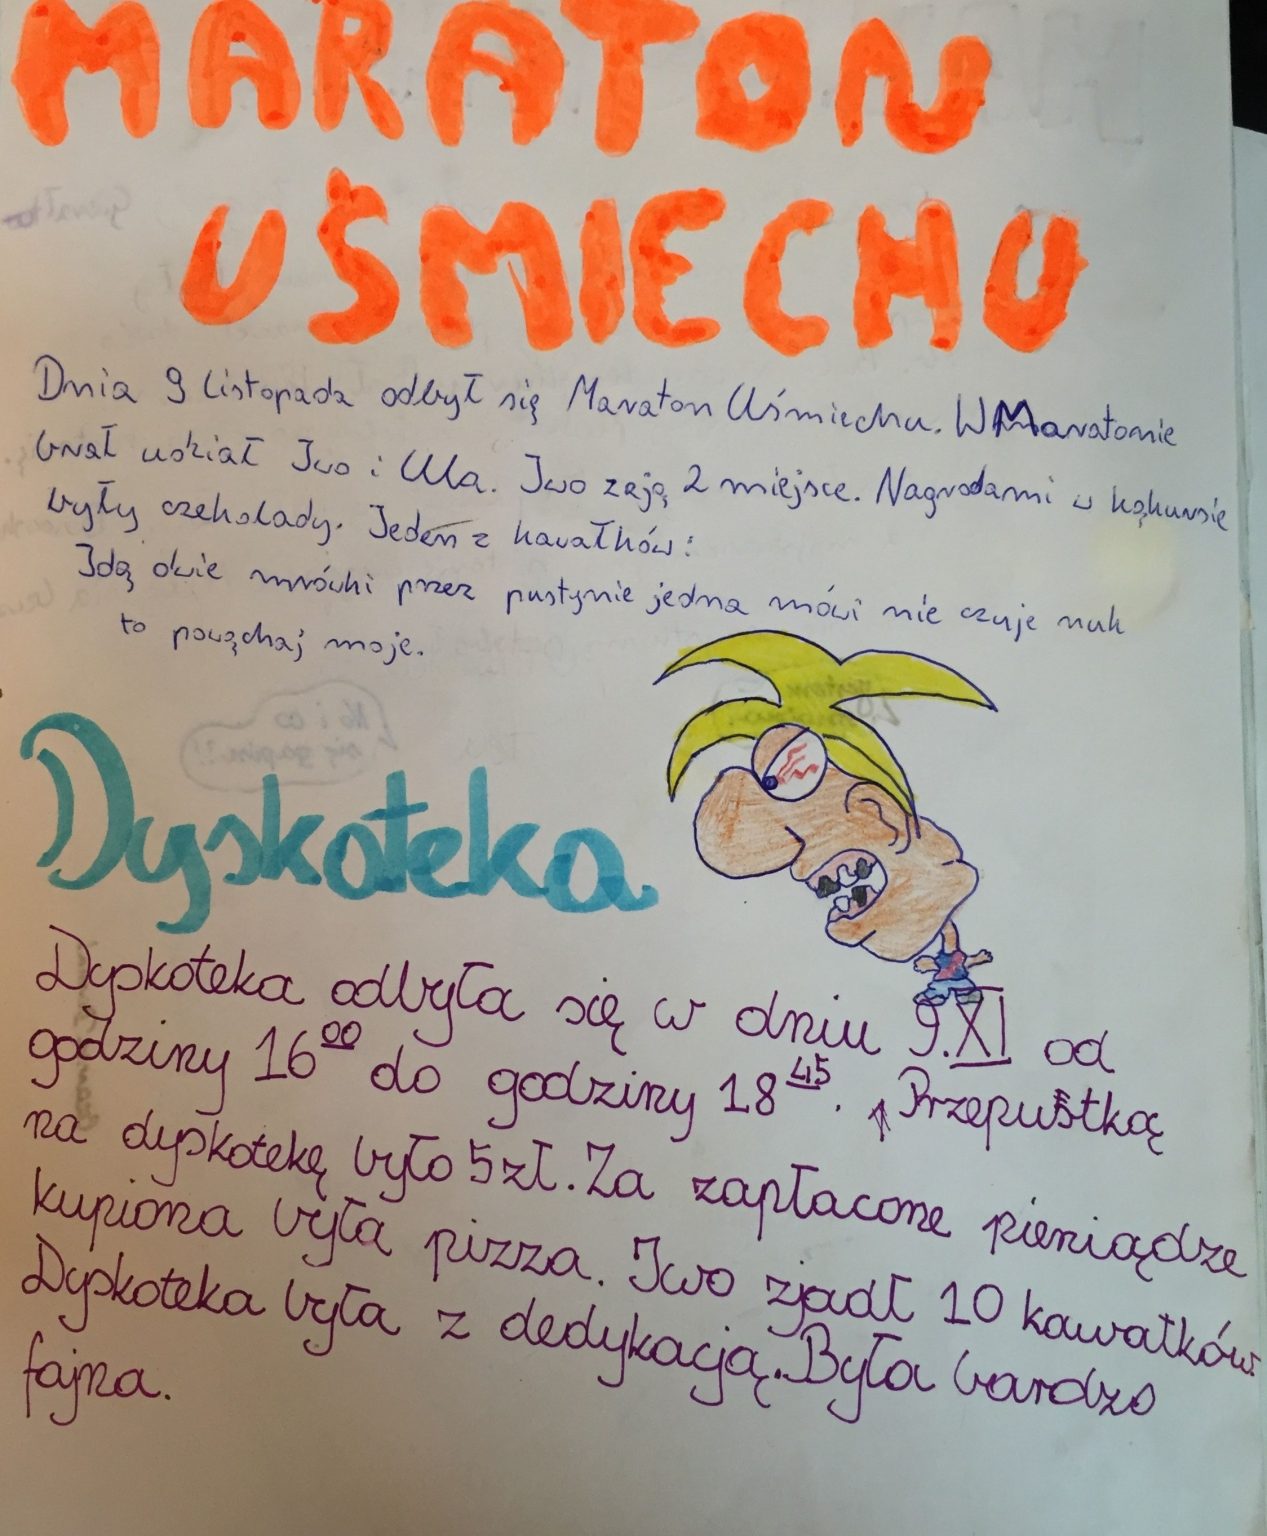 MARATON
UŚMIECHU
Dnia 9 listopada odbył się Maraton Uśmiechu. W Maratonie
brał udział Iwo i Ula. Iwo zają 2 miejsce. Nagrodami w kąkursie
były czekolady. Jeden z kawałków:
Idą dwie mrówki przez pustynie jedna mówi nie czuje nuk
to powąchaj moje.
Dyskoteka
Dyskoteka odbyła się w dniu 9.XI od
godziny 16⁰⁰ do godziny 18⁴⁵. Przepustką
na dyskotekę było 5 zł. Za zapłacone pieniądze
kupiona była pizza. Iwo zjadł 10 kawałków.
Dyskoteka była z dedykacją. Była bardzo
fajna.